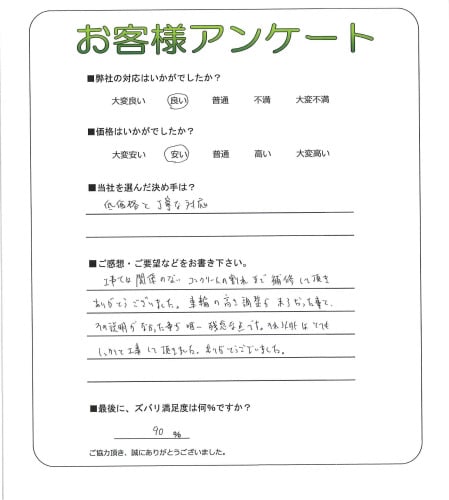 お客様アンケート
■弊社の対応はいかがでしたか？
大変良い 良い 普通 不満 大変不満
■価格はいかがでしたか？
大変安い 安い 普通 高い 大変高い
■当社を選んだ決め手は？
低価格と丁寧な対応
■ご感想・ご要望などをお書き下さい。
工事では関係のない コンクリートの割れまで補修して頂き
ありがとうございました。車輪の高さ調整が 出来なかった事と、
その説明がなかった事が唯一残念な点です。それ以外はとても
しっかり工事して頂きました。ありがとうございました。
■最後に、ズバリ満足度は何%ですか？
90 %
ご協力頂き、誠にありがとうございました。